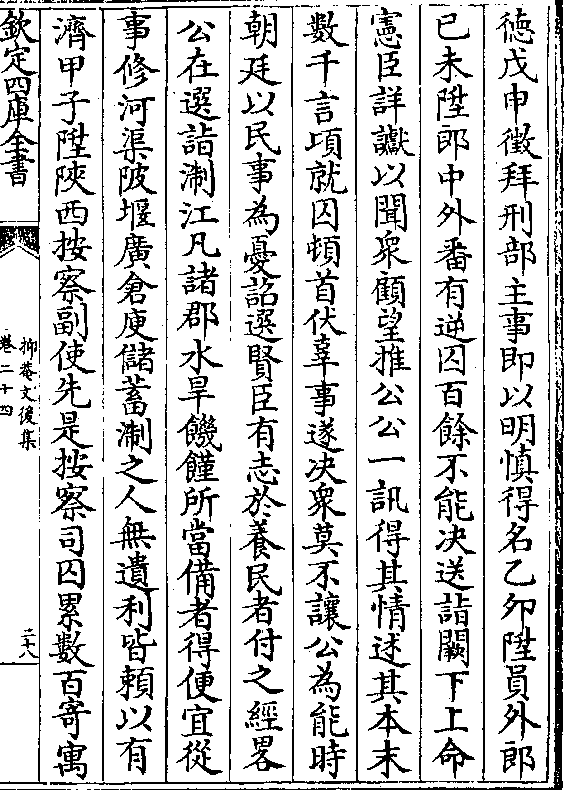 德戊申徵拜刑部主事即以明慎得名乙夘陞員外郎
已未陞郎中外番有逆囚百餘不能决送詣闕下上命
憲臣詳讞以聞衆顧望推公公一訊得其情述其本末
數千言項就囚頓首伏辜事遂决衆莫不讓公為能時
朝廷以民事為憂詔選賢臣有志於養民者付之經畧
公在選詣淛江凡諸郡水旱饑饉所當備者得便宜從
事修河渠陂堰廣倉庾儲蓄淛之人無遺利皆頼以有
濟甲子陞陜西按察副使先是按察司囚累數百寄寓
欽定四庫全書
抑菴文後集
卷二十四
二十八